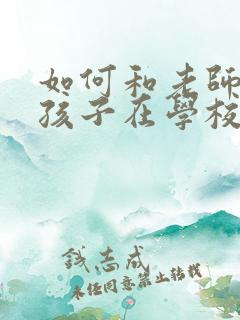 如何和老師
孩子在學校
錢志成
未經同意禁止轉載